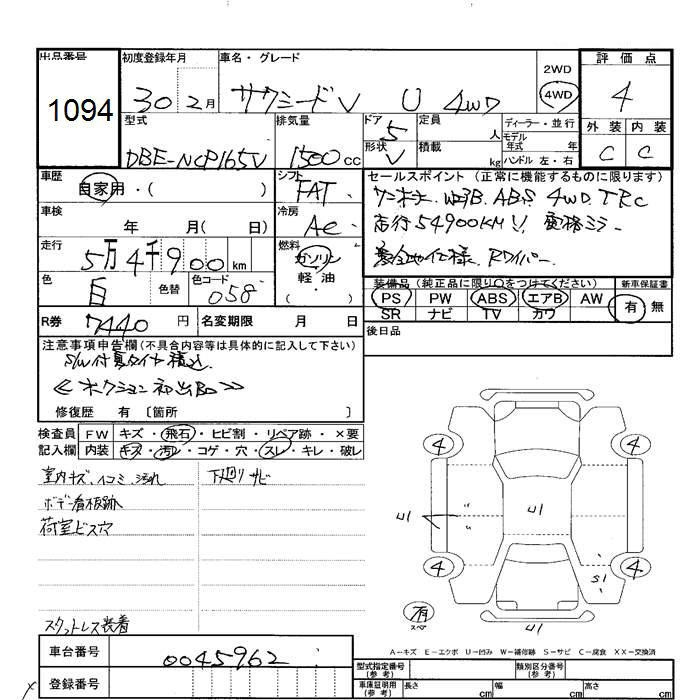 出品番号
1094
初度登録年月
30 2月
車名・グレード
サクシードV U 4WD
2WD
4WD
評価点
4
外装 内装
C C
型式
DBE-NCP165V
排気量
1500cc
ドア
5
形状
V
定員
人
積載
kg
ディーラー・並行
モデル
年式 年
ハンドル 左・右
車歴
自家用・( )
シフト
FAT
車検
年 月( 日)
冷房
AC
走行
5万4千900km
燃料
ガソリン
軽油
・
色
白
色替
色コード
058
R券 7440円
名変期限 月 日
セールスポイント(正常に機能するものに限ります)
ABS 4WD TRC
走行54900KM
寒冷地仕様 Rワイパー
装備品(純正品に限り○をつけてください)
PS PW ABS エアB AW
SR ナビ TV カワ
新車保証書
有 無
後日品
注意事項申告欄(不具合内容等は具体的に記入して下さい)
S/W付夏タイヤ積込
≪オークション初出品≫
修復歴 有〔箇所 〕
検査員 FW キズ・飛石・ヒビ割・リペア跡・×要
記入欄 内装 キズ・汚レ・コゲ・穴・スレ・キレ・破レ
室内キズ、ヘコミ、汚れ
下廻りサビ
ボデー看板跡
荷室ビス穴
スタットレス装着
4 4
U1 U1
4 4
S1
有
スペア
U1
A−キズ E−エクボ U−凹み W−補修跡 S−サビ C−腐食 XX−交換済
車台番号
0045962
登録番号
型式指定番号
(参考)
類別区分番号
(参考)
車庫証明用
(参考)
長さ cm 幅 cm 高さ cm